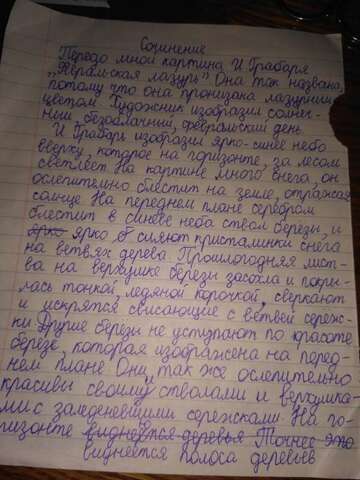 Сочинение
Передо мной картина И Грабаря
„Февральская лазурь" Она так названа,
потому что она пронизана лазурным
цветом Художник изобразил солнеч-
ный, безоблачный, февральский день
И Грабарь изобразил ярко-синее небо
вверху, которое на горизонте, за лесом
светлеет На картине много снега, он
ослепительно блестит на земле, отражая
солнце На переднем плане серебром
блестит в синеве неба ствол березы, и
ярко ярко б сияют кристалинки снега
на ветвях дерева Прошлогодняя лист-
ва на верхушке березы засохла и покры-
лась тонкой, ледяной корочкой, сверкают
и искрятся свисающие с ветвей сереж-
ки Другие березы не уступают по красоте
березе, которая изображена на перед-
нем плане Они так же ослепительно
красивы своими стволами и верхушка-
ми с заледеневшими сережками На го-
ризонте виднеется деревья Точнее это
виднеется полоса деревьев